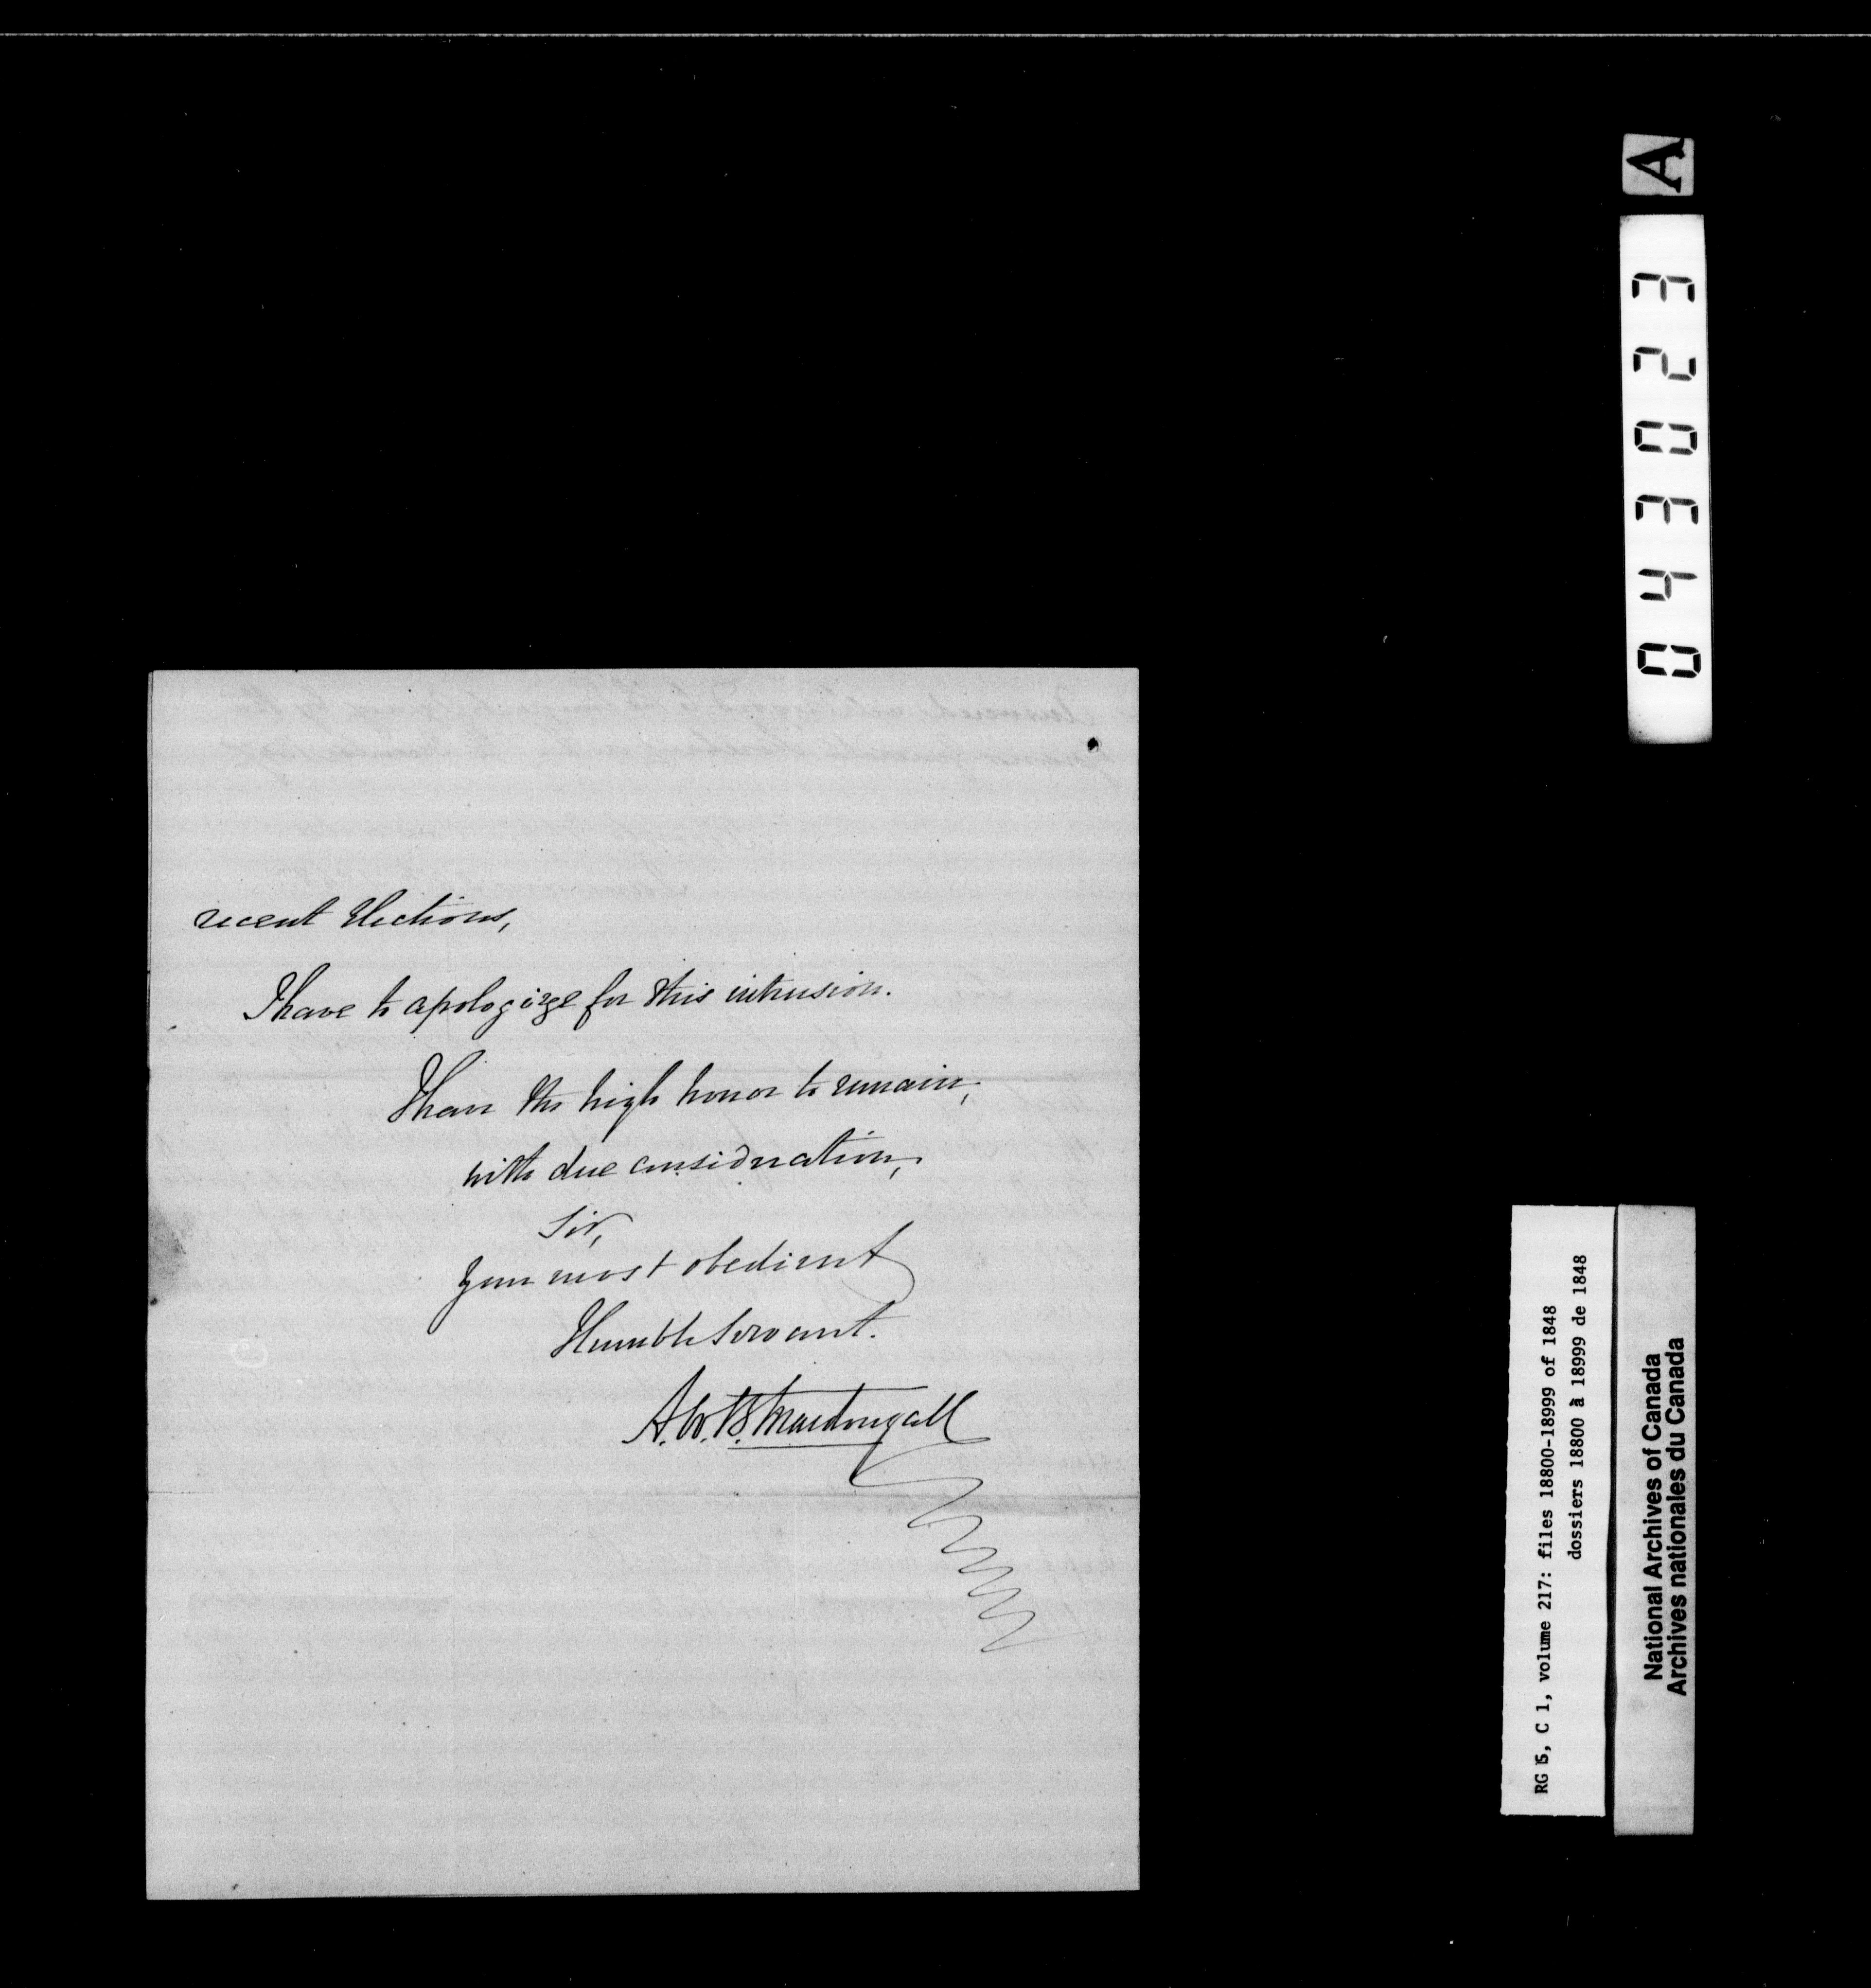 recent Elections,
I have to apologize for this intrusion.
I have the high honor to remain,
with due consideration,
Sir,
your most obedient
Humble Servant.
A. W. B. Macdougall
A
043023
RG 5, C 1, volume 217: files 18800-18999 of 1848
dossiers 18800 à 18999 de 1848
National Archives of Canada
Archives nationales du Canada